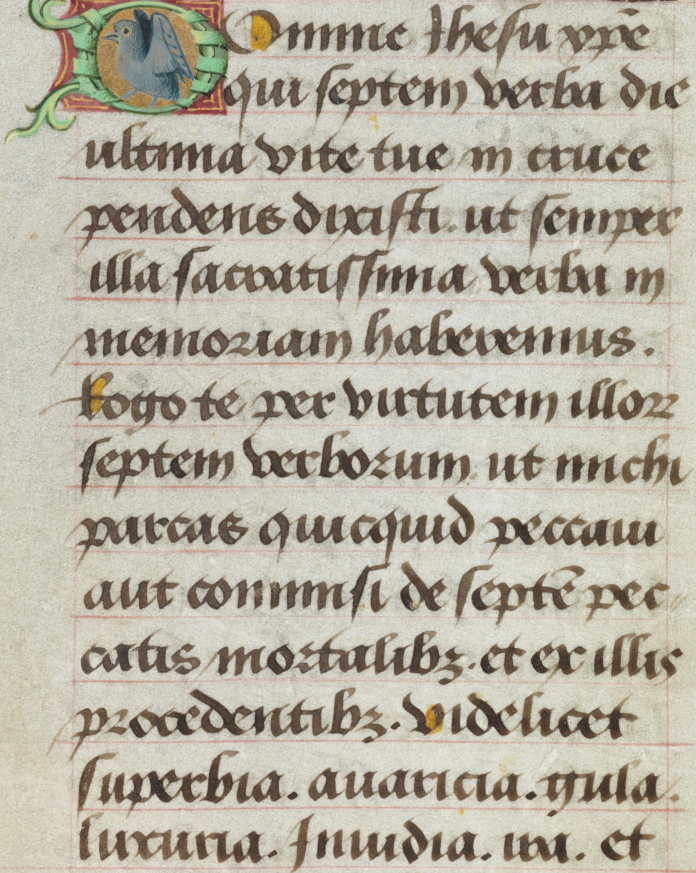 DOmine Jhesu xpē
qui septem verba die
ultima vite tue in cruce
pendens dixisti. ut semper
illa sacratissima verba in
memoriam haberemus.
Rogo te per virtutem illoꝝ
septem verborum ut michi
parcas quicquid peccaui
aut commisi de septē pec
catis mortalibꝫ. et ex illis
procedentibꝫ. Videlicet
superbia. auaricia. gula.
luxuria. Jnuidia. ira. et